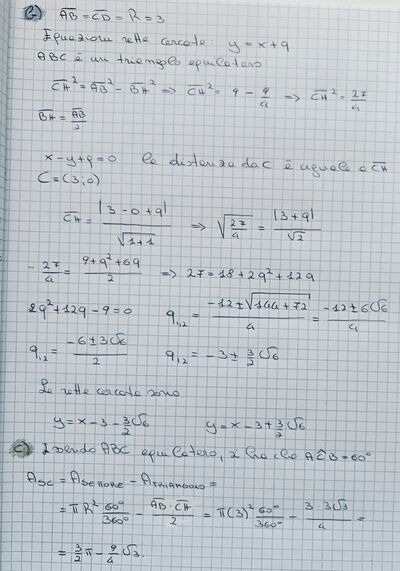 b) AB = CD = R = 3
Equazioni rette cercate: y = x + q
ABC è un triangolo equilatero
CH² = AB² - BH² => CH² = 9 - 9/4 => CH² = 27/4
BH = AB/2
x - y + q = 0 la distanza da C è uguale a CH
C = (3; 0)
CH = |3 - 0 + q| / √(1+1) => √(27/4) = |3 + q| / √2
- 27/4 = (9 + q² + 6q)/2 => 27 = 18 + 2q² + 12q
2q² + 12q - 9 = 0 q₁,₂ = (-12 ± √(144 + 72))/4 = (-12 ± 6√6)/4
q₁,₂ = (-6 ± 3√6)/2 q₁,₂ = -3 ± 3/2 √6
Le rette cercate sono
y = x - 3 - 3/2 √6 y = x - 3 + 3/2 √6
c) Essendo ABC equilatero, si ha che AĈB = 60°
A = A SETTORE - A TRIANGOLO =
= πR² 60°/360° - AB · CH/2 = π(3)² 60°/360° - 3 · 3√3/4 =
= 3/2 π - 9/4 √3.